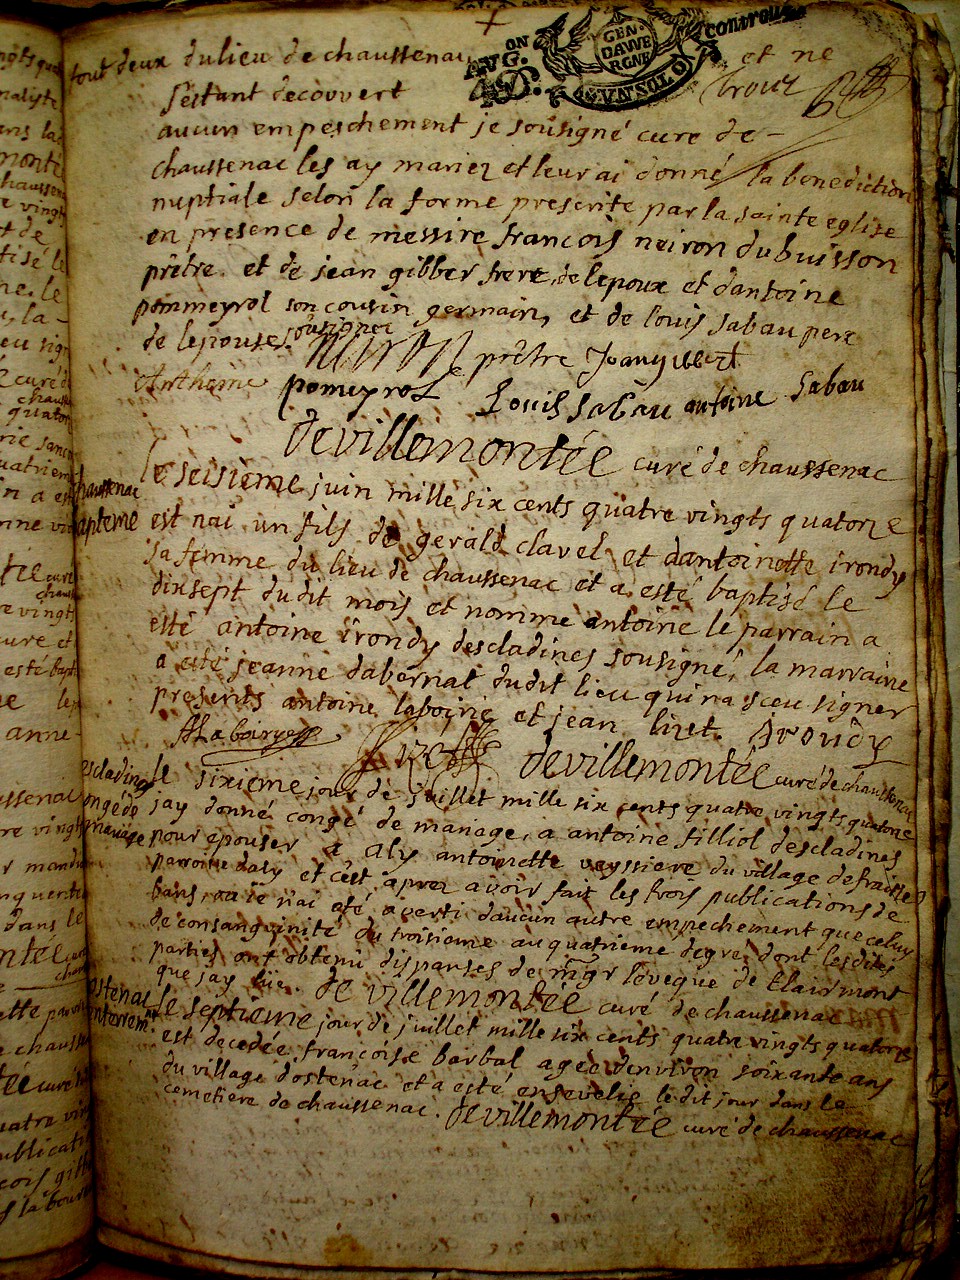 tout deux du lieu de chaussenac et ne
sestant decouvert
aucun empeschement je sousigné curé de
chaussenac les ay mariez et leur ai donné la benediction
nuptiale selon la forme prescrite par la sainte eglise
en presence de messire francois neiron du buisson
prêtre. et de jean gibber frere de lepoux et dantoine
pommeyrol son cousin germain, et de louis sabau pere
de lepouse. sousignez
prêtre
Antheine pomeyrol Louis sabau antoine sabau
devillemontée curé de chaussenac
chaussenac
bapteme
le seisième juin mille six cents quatre vingts quatorze
est nai un fils de gerald clavel et dantoinette irondy
sa femme du lieu de chaussenac et a esté baptisé le
dixsept dudit mois et nommé antoine le parrain a
esté antoine irondy descladines sousigné, la marraine
a esté jeanne dabernat dudit lieu qui na sceu signer
presents antoine laboirie et jean lizet. Irondy
devillemontée curé de chaussenac
escladines
congé de
mariage
le sixieme jour de juillet mille six cents quatre vingts quatorze
jay donné congé de mariage, a antoine filliol descladines
pour epouser a aly antoinette veyssiere du village de
parroisse daly et cest aprez avoir fait les trois publications de
bans, sa ie n'ai esté averti daucun autre empechement que celuy
de consanguinité du troisieme au quatrieme degré, dont lesdites
parties ont obtenu dispanses de mgr leveque de Clairmont
que jay lüe. de villemontée curé de chaussenac
ostenac
enterrem^nt
le septieme jour de juillet mille six cents quatre vingts quatorze
est decedée françoise barbal agée denviron soixante ans
du village dostenac et a esté ensevelie le dit jour dans le
cemetiere de chaussenac. devillemontée curé de chaussenac